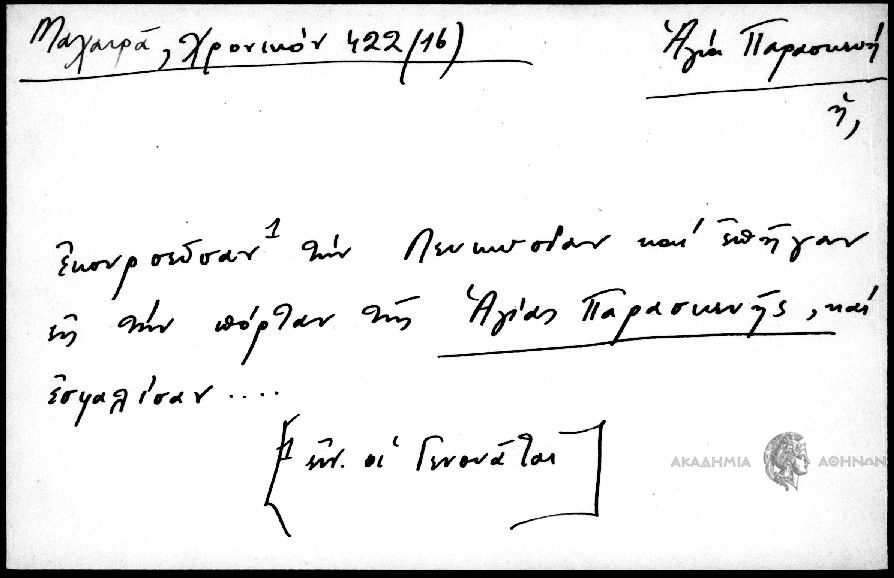 Μαχαιρά, Χρονικόν 422/16)
Αγία Παρασκευή
ἡ,
ἐκουρσεῦσαν¹ τὴν Λευκωσίαν καὶ ἐπῆγαν
εἰς τὴν πόρταν τῆς Ἁγίας Παρασκευῆς, καὶ
ἐσφαλίσαν ....
[1 ἐνν. οἱ Γενουᾶται]
ΑΚΑΔΗΜΙΑ ΑΘΗΝΩΝ